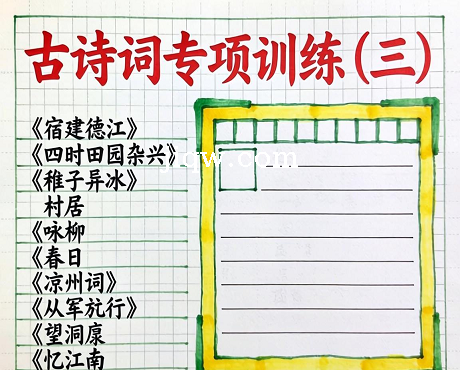 古诗词专项训练(三)
《宿建德江》
《四时田园杂兴》
《稚子弄冰》
村居
《咏柳
《春日
《凉州词》
《从军行》
《望洞
《忆江南